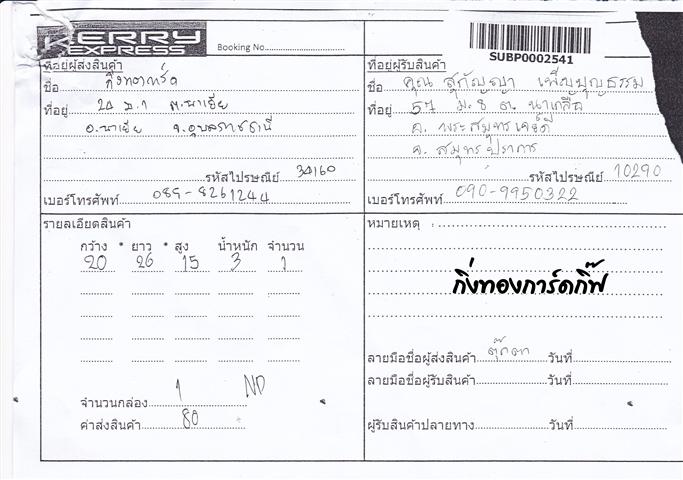 KERRY
EXPRESS
Booking No
SUBP0002541
ที่อยู่ผู้ส่งสินค้า
ชื่อ กิ่งทองการ์ด
ที่อยู่ 20 ม.1 ต.นาเยีย
อ.นาเยีย จ.อุบลราชธานี
รหัสไปรษณีย์ 34160
เบอร์โทรศัพท์ 089-8261244
ที่อยู่ผู้รับสินค้า
ชื่อ คุณ สุกัญญา เพ็ญบุญธรรม
ที่อยู่ 57 ม.8 ต.นาเกลือ
อ. พระสมุทรเจดีย์
จ. สมุทรปราการ
รหัสไปรษณีย์ 10290
เบอร์โทรศัพท์ 090-9950322
รายละเอียดสินค้า
กว้าง * ยาว * สูง น้ำหนัก จำนวน
20 26 15 3 1
จำนวนกล่อง 1 ND
ค่าส่งสินค้า 80
หมายเหตุ :
กิ่งทองการ์ดกิ๊ฟ
ลายมือชื่อผู้ส่งสินค้า ตุ๊กตา วันที่
ลายมือชื่อผู้รับสินค้า วันที่
ผู้รับสินค้าปลายทาง วันที่